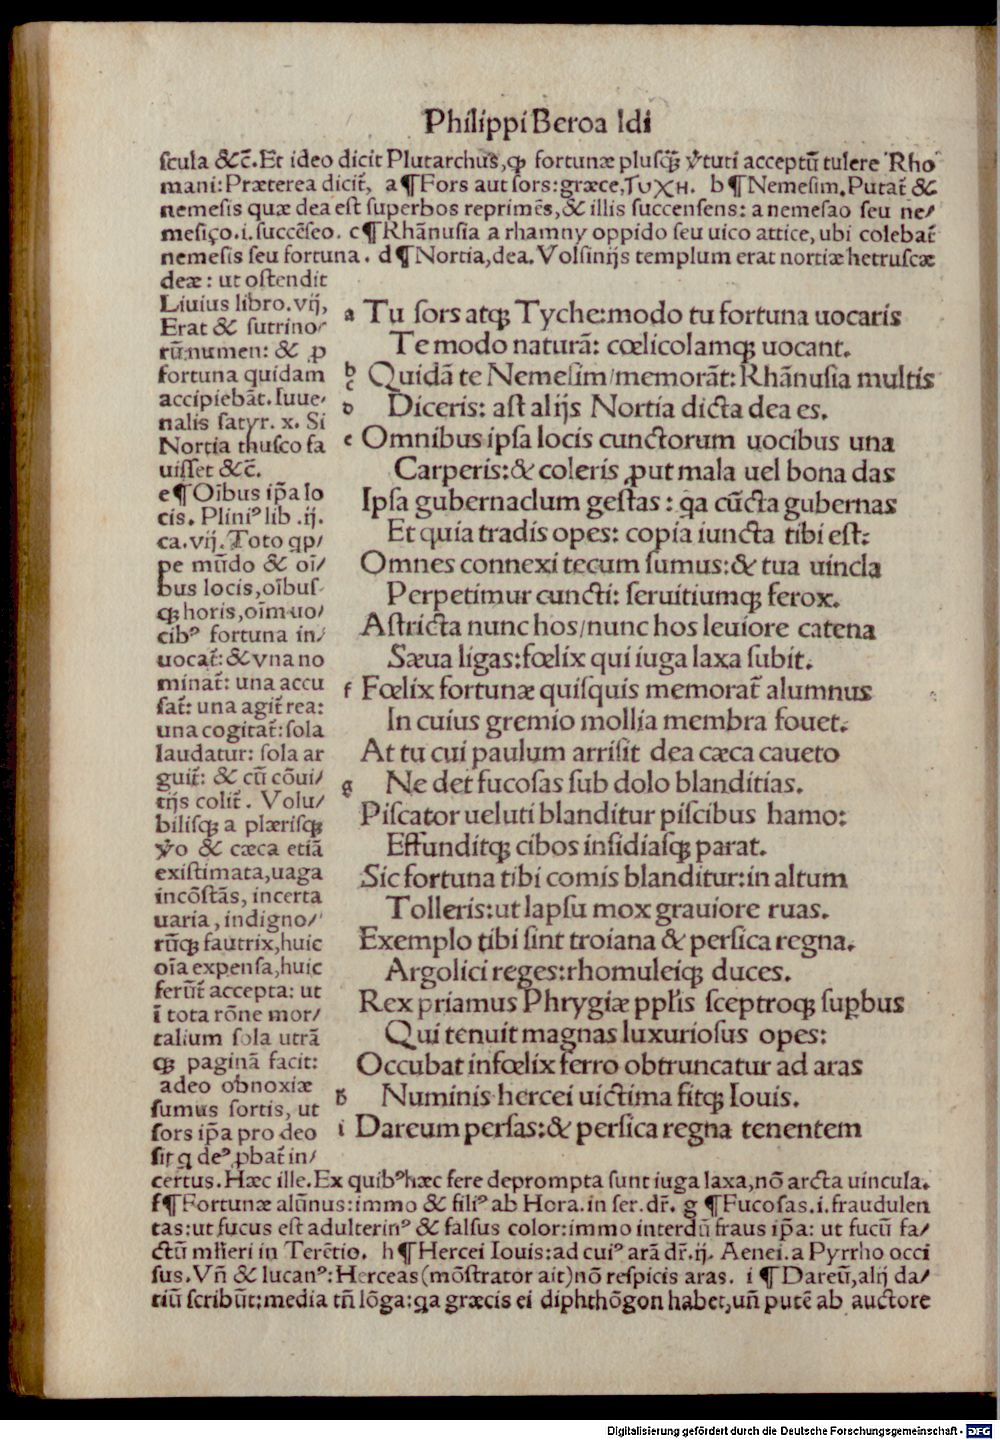 Philippi Beroa ldi
scula &c̃. Et ideo dicit Plutarchus, ꝙ fortunæ plusq̃ꝫ v̓tuti acceptũ tulere Rho
mani: Præterea dicit̃, a ¶ Fors aut sors: græce, TυXH. b ¶ Nemesim. Putat̃ &
nemesis quæ dea est superbos reprimẽs, & illis succensens: a nemesao seu ne/
mesiço .i. succẽseo. c ¶ Rhãnusia a rhamny oppido seu uico attice, ubi colebat̃
nemesis seu fortuna. d ¶ Nortia, dea. Volsinijs templum erat nortiæ hetruscæ
deæ: ut ostendit
Liuius libro. vij,
Erat & sutrino/
rũ numen: & ꝓ
fortuna quidam
accipiebãt. Iuue/
nalis satyr. x. Si
Nortia thusco fa
uisset &c̃.
e ¶ Oĩbus ip̃a lo
cis. Pliniꝰ lib .ij.
ca. vij. Toto qp/
pe mũdo & oĩ/
bus locis, oĩbus
qꝫ horis, oĩm uo/
cibꝰ fortuna in/
uocat̃: & vna no
minat̃: una accu
sat̃: una agit̃ rea:
una cogitat̃: sola
laudatur: sola ar
guit̃: & cũ cõui/
tijs colit̃. Volu/
bilisqꝫ a plærisqꝫ
v̓o & cæca etiã
existimata, uaga
incõstãs, incerta
uaria, indigno/
rũqꝫ fautrix, huic
oĩa expensa, huic
ferũt̃ accepta: ut
ĩ tota rõne mor/
talium sola utrã
qꝫ paginã facit:
adeo obnoxiæ
sumus sortis, ut
sors ip̃a pro deo
sit q deꝰ ꝓbat̃ in/
a Tu sors atqꝫ Tyche: modo tu fortuna uocaris
Te modo naturã: cœlicolamqꝫ uocant.
b c Quidã te Nemesim/memorãt: Rhãnusia multis
d Diceris: ast alijs Nortia dicta dea es.
e Omnibus ipsa locis cunctorum uocibus una
Carperis: & coleris ꝓut mala uel bona das
Ipsa gubernaclum gestas: qa cũcta gubernas
Et quia tradis opes: copia iuncta tibi est:
Omnes connexi tecum sumus: & tua uincla
Perpetimur cuncti: seruitiumqꝫ ferox.
Astricta nunc hos/nunc hos leuiore catena
Sæua ligas: fœlix qui iuga laxa subit.
f Fœlix fortunæ quisquis memorat̃ alumnus
In cuius gremio mollia membra fouet.
At tu cui paulum arrisit dea cæca caueto
g Ne det fucosas sub dolo blanditias.
Piscator ueluti blanditur piscibus hamo:
Effunditqꝫ cibos insidiasqꝫ parat.
Sic fortuna tibi comis blanditur: in altum
Tolleris: ut lapsu mox grauiore ruas.
Exemplo tibi sint troiana & persica regna.
Argolici reges: rhomuleiqꝫ duces.
Rex priamus Phrygiæ ppl̃is sceptroqꝫ suꝑbus
Qui tenuit magnas luxuriosus opes:
Occubat infœlix ferro obtruncatur ad aras
h Numinis hercei uictima fitqꝫ Iouis.
i Dareum persas: & persica regna tenentem
certus. Hæc ille. Ex quibꝰ hæc fere deprompta sunt iuga laxa, nõ arcta uincula.
f ¶ Fortunæ alũnus: immo & filiꝰ ab Hora. in ser. dr̃. g ¶ Fucosas .i. fraudulen
tas: ut fucus est adulterinꝰ & falsus color: immo interdũ fraus ip̃a: ut fucũ fa/
ctũ ml̃ieri in Terẽtio. h ¶ Hercei Iouis: ad cuiꝰ arã dr̃ .ij. Aenei. a Pyrrho occi
sus. Vñ & lucanꝰ: Herceas (mõstrator ait) nõ respicis aras. i ¶ Dareũ, alij da/
riũ scribũt: media tñ lõga: qa græcis ei diphthõgon habet, uñ putẽ ab auctore
Digitalisierung gefördert durch die Deutsche Forschungsgemeinschaft - DFG